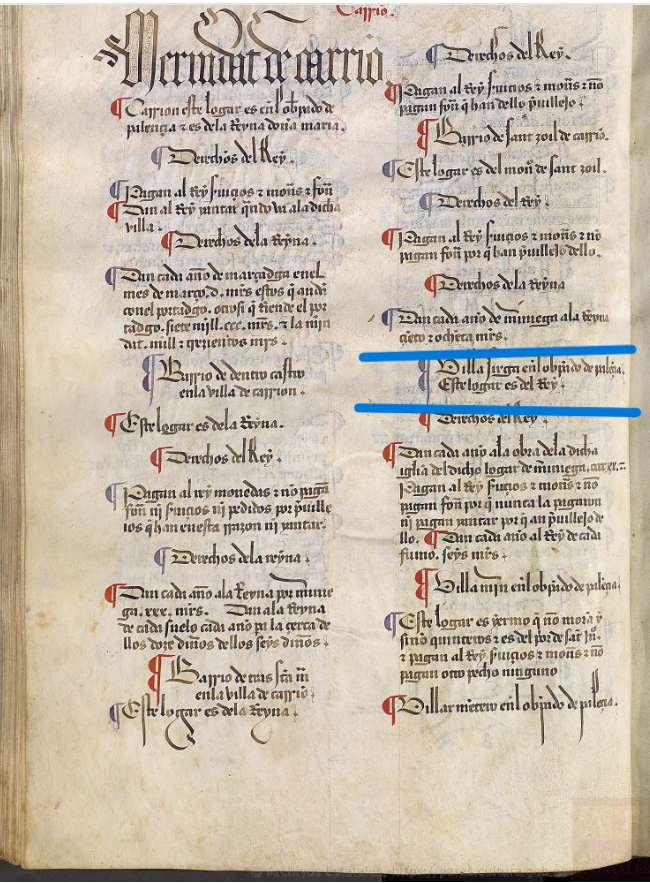 Carrio.
Merindat de carrio
¶ Carrion este logar es en l obpado de
palençia τ es dela Reyna doña maria.
¶ Derechos del Rey.
¶ Pagan al Rey seruiçios τ mons τ fon
¶ Dan al Rey yantar qndo va ala dicha
villa.
¶ Derechos dela Reyna.
¶ Dan cada año de
mes de março .d. mrs estos q
con el portadgo. q Riende el por
tadgo. siete mjll. ccc. mrs. τ la
mill τ qrzientos mrs
¶ Barrio de dentro castro
en la villa de carrion.
¶ Este logar es dela Reyna.
¶ Derechos del Rey.
¶ Pagan al rey monedas τ no pagan
fon nj seruiçios nj pedidos por preuille
ios q han en esta rrazon nj yantar.
¶ Derechos dela reyna.
¶ Dan cada año ala Reyna por
ga. xxx. mrs. Dan ala Reyna
de cada suelo cada año pa la çerca de
llos dose dinos dellos seys dinos.
¶ Barrio de tras sta m
en la villa de carrio.
¶ Este logar es dela Reyna.
¶ Derechos del Rey.
¶ Pagan al Rey seruiçios τ mons τ no
pagan fon q han dello preuillejo.
¶ Barrio de sant zoil de carrio.
¶ Este logar es del mon de sant zoil.
¶ Derechos del Rey.
¶ Pagan al Rey seruiçios τ mons τ no
pagan fon por q han preuillejo dello.
¶ Derechos dela Reyna
¶ Dan cada año de ala Reyna
çieto τ ocheta mrs.
¶ Villa sirga en l obpado de palençia.
Este logar es del Rey.
¶ Derechos del Rey.
¶ Dan cada año ala obra dela dicha
iglia del dicho logar de
Pagan al Rey seruiçios τ mons τ no
pagan fon por q nunca la pagaron
nj pagan yantar por q an preuillejo de
llo. ¶ Dan cada año al Rey de cada
fumo. seys mrs.
¶ Villa en l obpado de palençia.
¶ Este logar es yermo q no mora y
sino quinteros τ es del
τ pagan al Rey seruiçios τ mons τ no
pagan otro pecho ninguno
¶ Villar en l obpado de palençia.